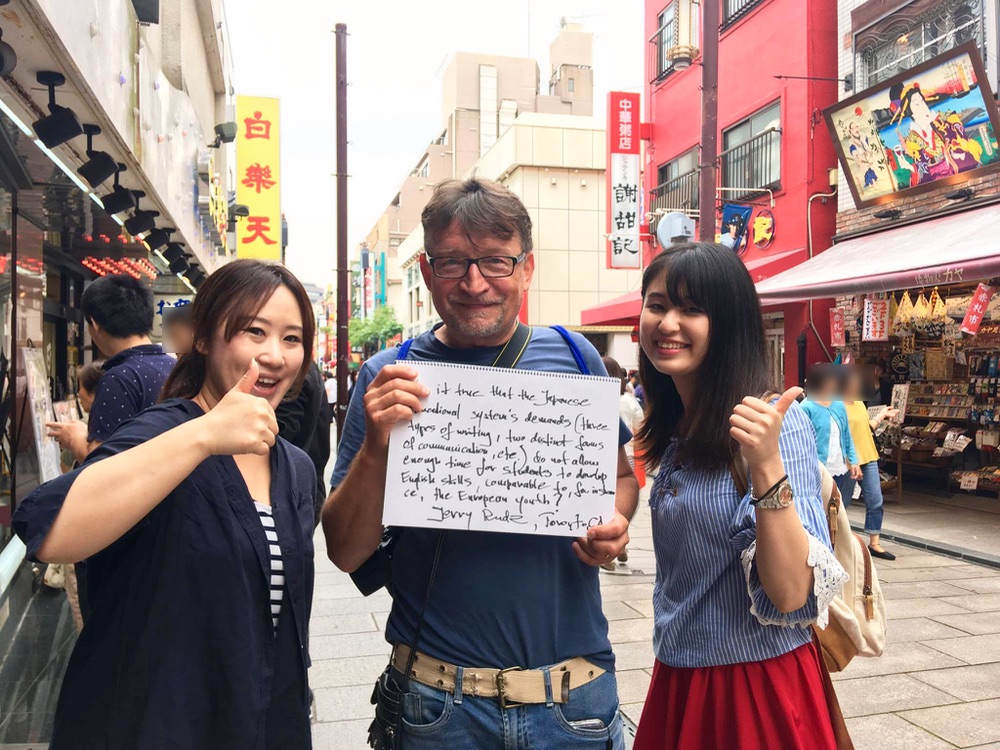 白樂天
中華粥店
謝甜記
it true that the Japanese
cational system's demands (three
types of writing, two distinct forms
of communication, etc.) do not allow
enough time for students to develop
English skills, comparable to, for instan
ce, the European youth?
Jerry Rudz, Toronto, CA
赤札市